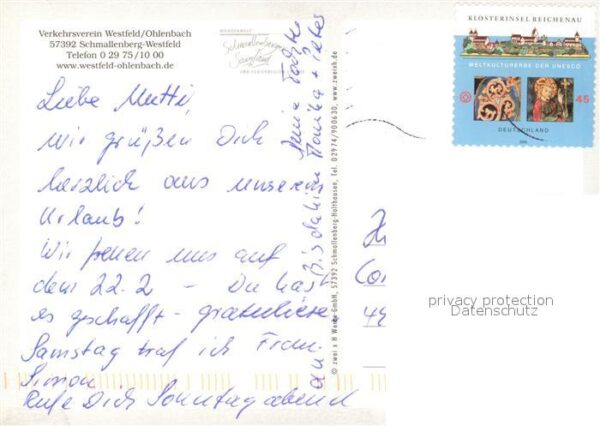 Verkehrsverein Westfeld/Ohlenbach
57392 Schmallenberg-Westfeld
Telefon 0 29 75/10 00
www.westfeld-ohlenbach.de
Schmallenberger
Sauerland
Liebe Mutti,
wir grüßen Dich
herzlich aus unserem
Urlaub!
Wir freuen uns auf
dem 22.2 - Du hast
es geschafft - gratuliere
Samstag traf ich Frau
Simon
Rufe Dich Sonntag abend
an
Bis dahin
Deine Tochter
Monika +
© zwei x H Werbe GmbH, 57392 Schmallenberg-Holthausen, Tel. 02974/900630, www.zweixh.de
KLOSTERINSEL REICHENAU
WELTKULTURERBE DER UNESCO
45
DEUTSCHLAND
privacy protection
Datenschutz